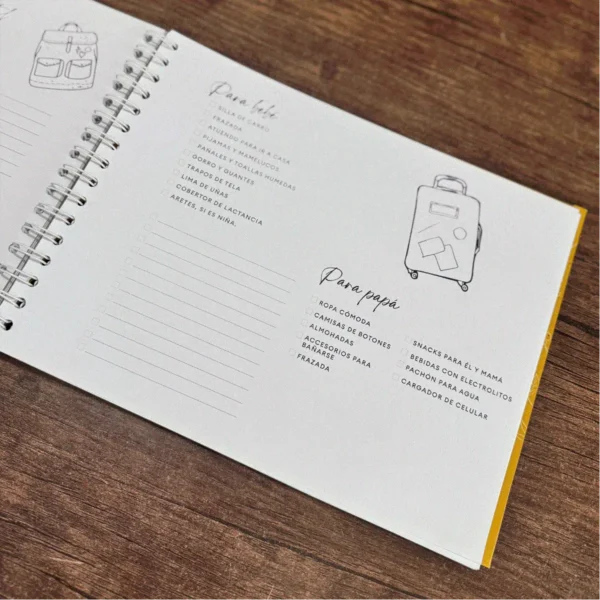 Para bebé
SILLA DE CARRO
FRAZADA
ATUENDO PARA IR A CASA
PIJAMAS Y MAMELUCOS
PAÑALES Y TOALLAS HUMEDAS
GORRO Y GUANTES
TRAPOS DE TELA
LIMA DE UÑAS
COBERTOR DE LACTANCIA
ARETES, SI ES NIÑA.
Para papá
ROPA CÓMODA
CAMISAS DE BOTONES
ALMOHADAS
ACCESORIOS PARA
BAÑARSE
FRAZADA
SNACKS PARA ÉL Y MAMÁ
BEBIDAS CON ELECTROLITOS
PACHÓN PARA AGUA
CARGADOR DE CELULAR